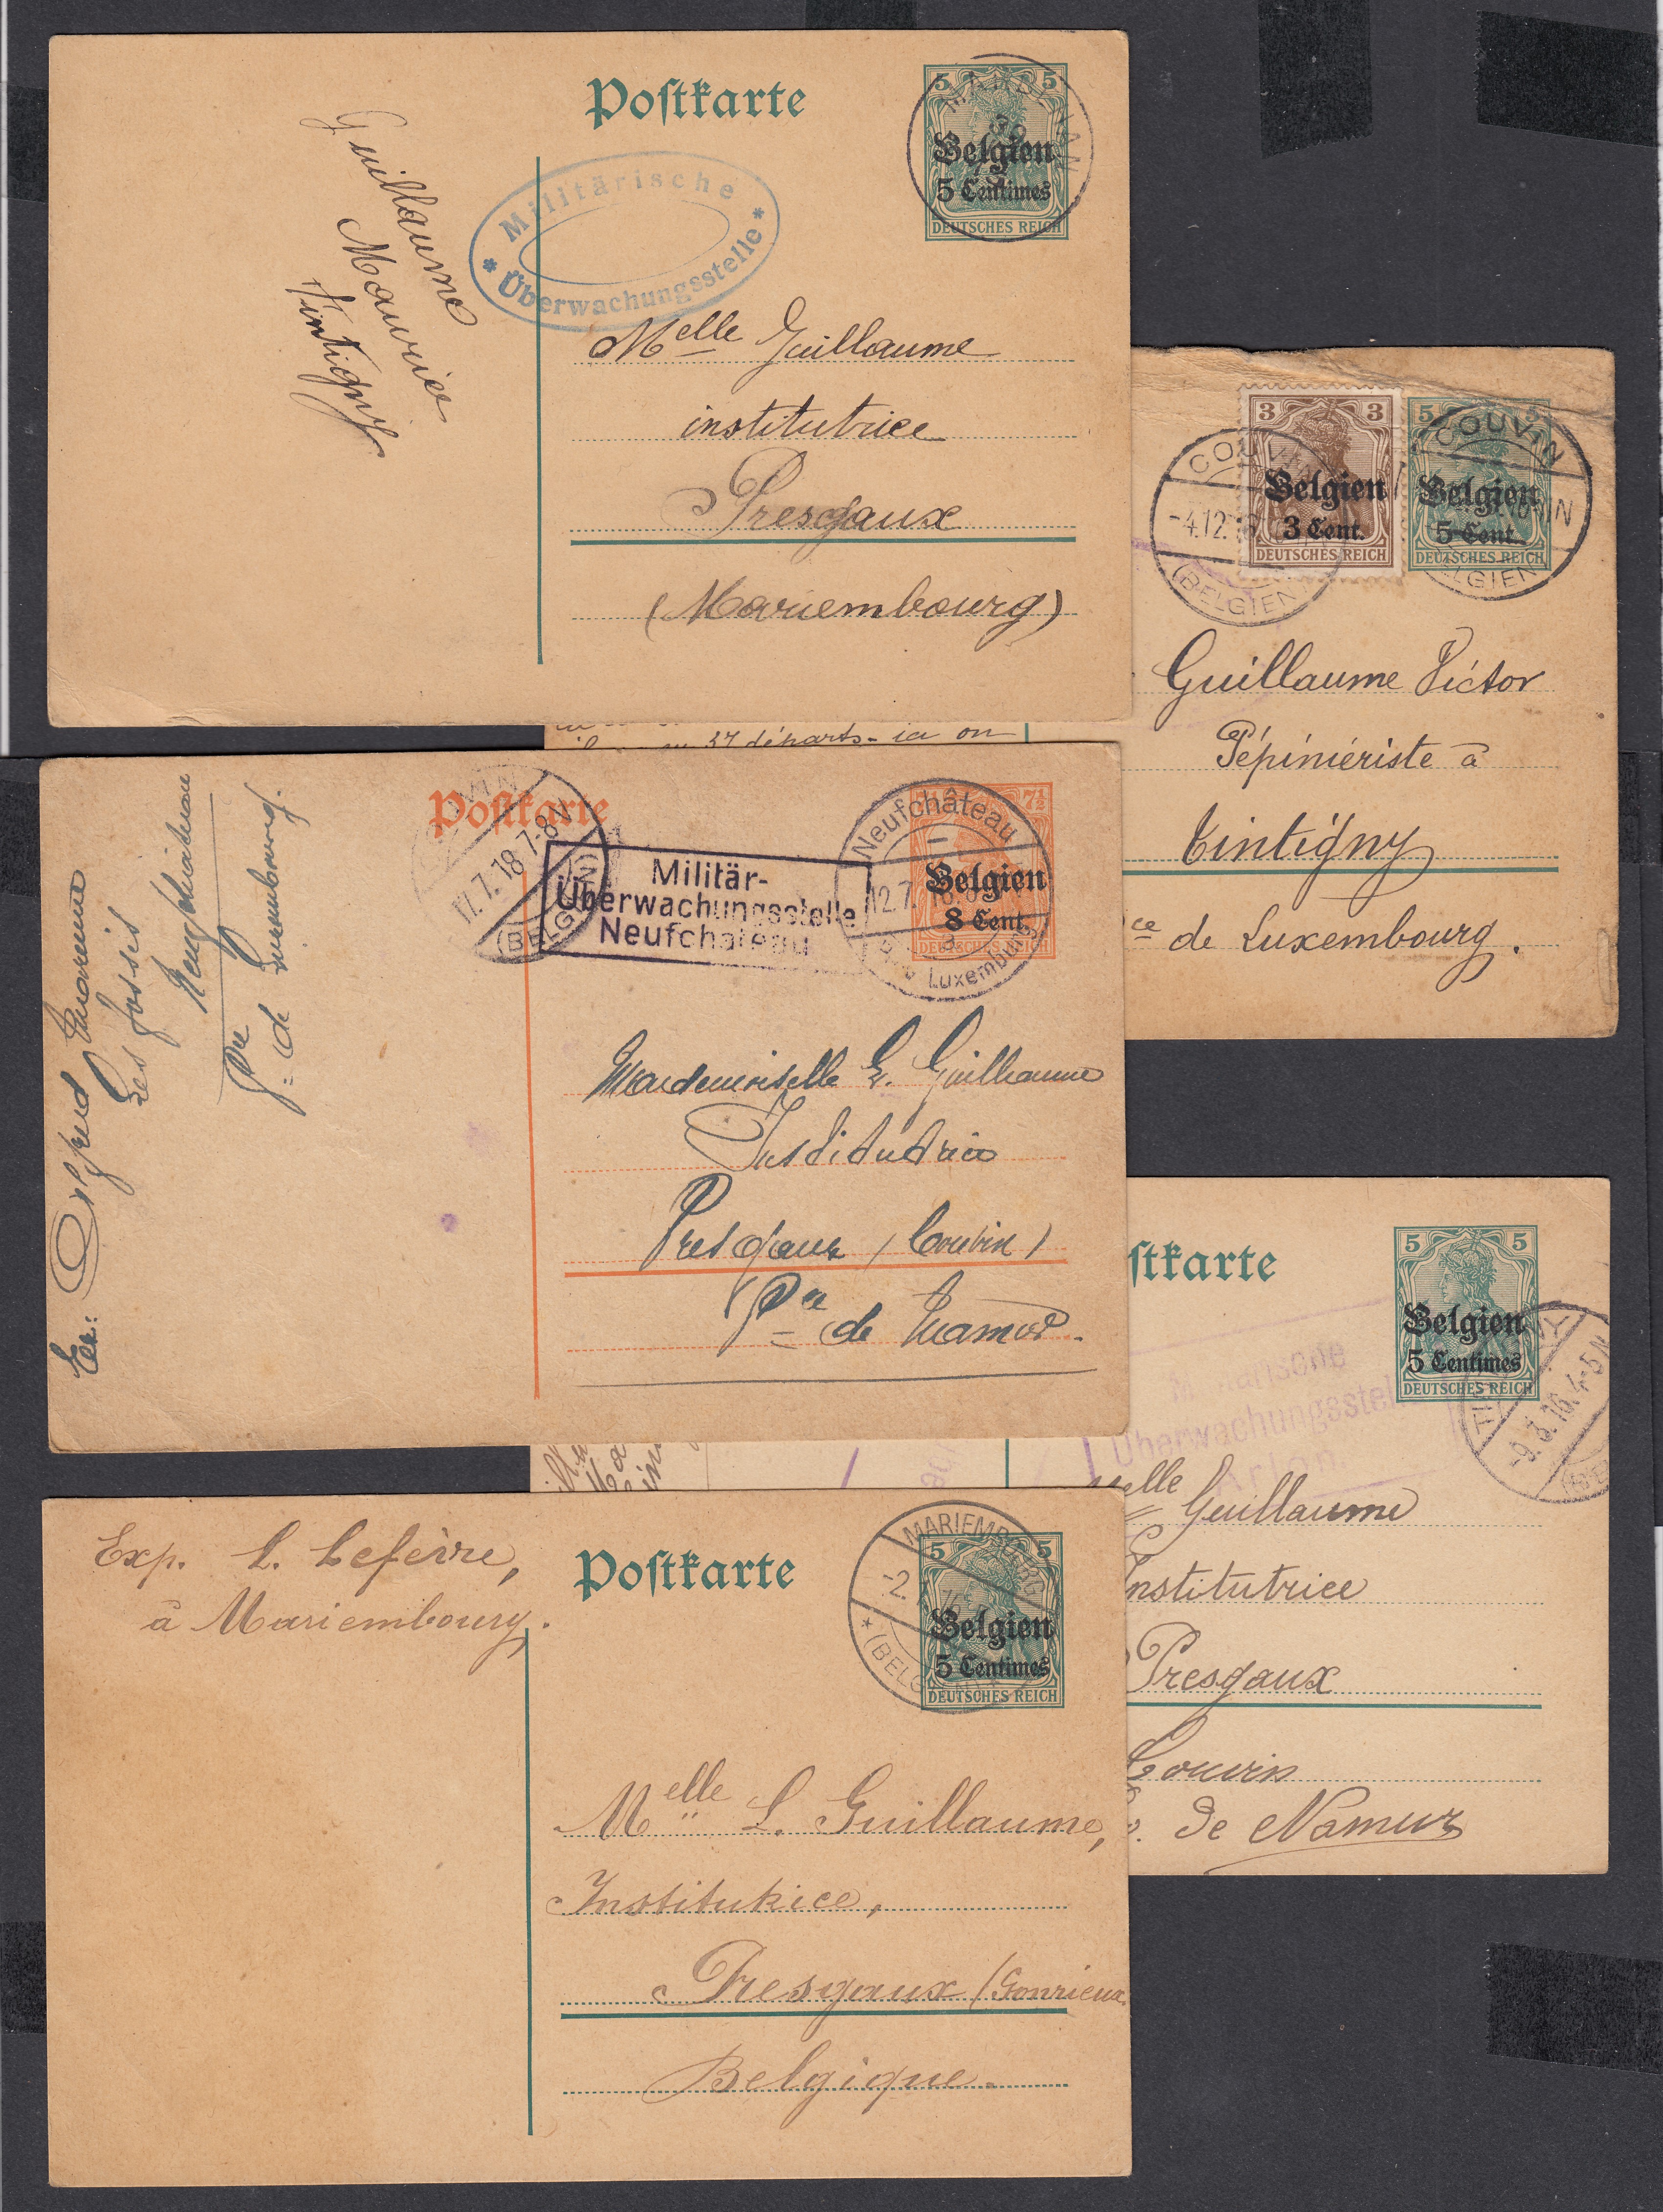 Postkarte
5 5
Belgien
5 Centimes
DEUTSCHES REICH
Militärische
* Überwachungsstelle *
Guillaume
Maurice
Tintigny
Melle Guillaume
institutrice
Presgaux
(Mariembourg)
COUVIN
-4.12.
(BELGIEN)
3 3
Belgien
3 Cent.
DEUTSCHES REICH
5 5
Belgien
5 Cent.
DEUTSCHES REICH
COUVIN
Guillaume Victor
Pépiniériste à
Tintigny
ce de Luxembourg.
37 départs - ici on
Postkarte
17.7.18 7-8N
Militär-
Überwachungsstelle
Neufchateau
Neufchâteau
12.7.
Luxemburg
7½
Belgien
8 Cent.
Alfred
Les fossés
Neufchâteau
Pce
de Luxembourg.
Mademoiselle G. Guillaume
Institutrice
Presgaux (Couvin)
Pce de Namur.
stkarte
5 5
Belgien
5 Centimes
DEUTSCHES REICH
-9.3.16. 4-5N
Militärische
Überwachungsstelle
Arlon
elle Guillaume
Institutrice
Presgaux
Couvin
de Namur
Exp. L. Lefèvre,
à Mariembourg.
Postkarte
MARIEMBOURG
5 5
Belgien
5 Centimes
DEUTSCHES REICH
Melle L. Guillaume,
Institutrice,
Presgaux (Gonrieux
Belgique.